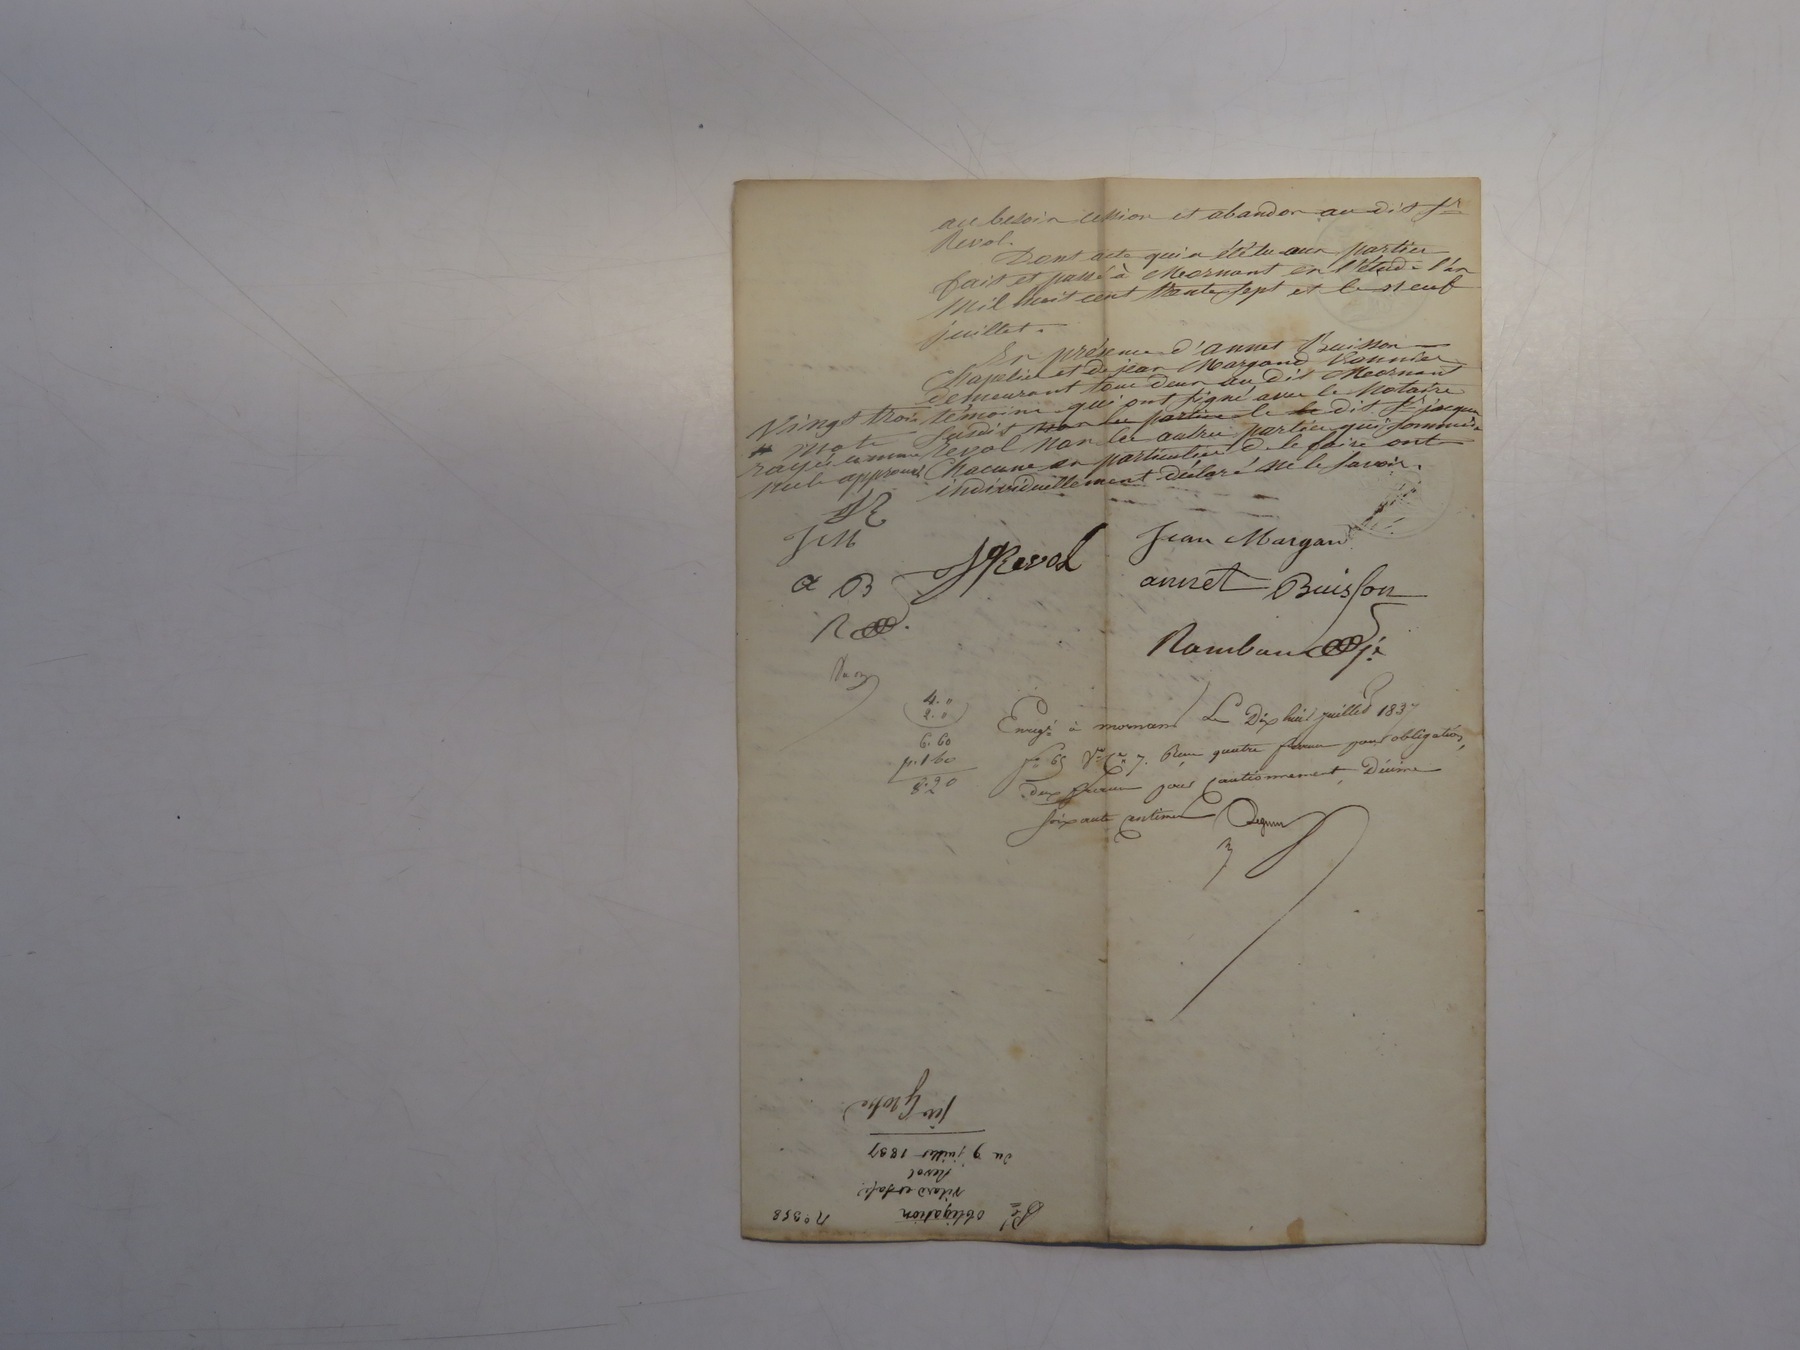 au besoin cession et abandon au dit Sr
Revol.
Dont acte qui a été lu aux parties
fait et passé à Mornant en l'étude l'an
mil huit cent trente sept et le neuf
juillet.
En présence d'annet Buisson
Chapelier et de jean Margand Vannier
demeurant tous deux au dit Mornant
témoins qui ont signé avec le Notaire
susdit non les parties le le dit Sr jacques
Revol non les autres parties qui sommées
Chacune en particulier de le faire ont
individuellement déclaré ne le savoir.
Vingt trois
mots
rayés comme
nuls approuvés
JR
J M
a B
R
JRevol
Jean Margan
annet Buisson
Rambau
4. "
2. "
6. 60
p. 1 60
8. 20
Enregé à mornant Le Dix huit juillet 1837
fo 65 Vo Ce 7. Reçu quatre francs pour obligation,
deux francs pour cautionnement, Décime
soixante centimes
Bt
obligation
No 358
Vilard et
Revol
du 9 juillet 1837
1ère Grosse